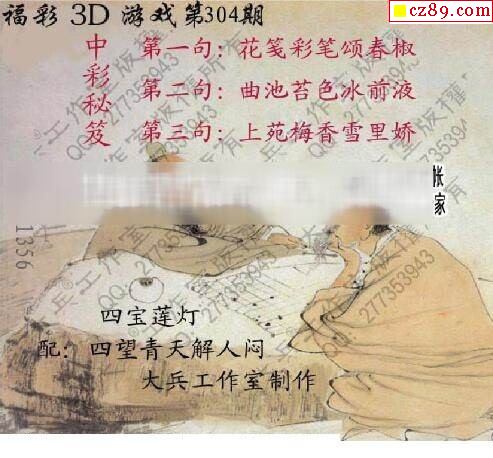 福彩 3D 游戏第304期
cz89.com
中彩秘笈
第一句：花笺彩笔颂春椒
第二句：曲池苔色冰前液
第三句：上苑梅香雪里娇
张家
1356
四宝莲灯
配：四望青天解人闷
大兵工作室制作
大兵工作室版權所有
QQ:277353943